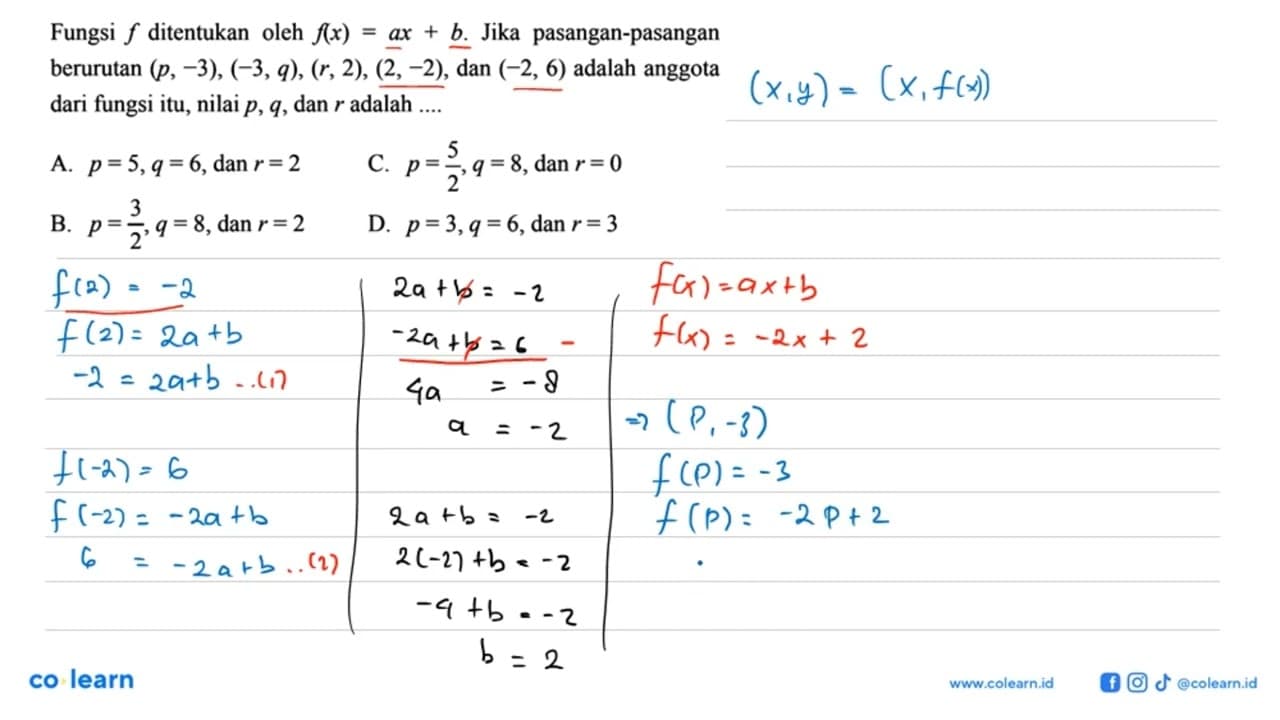 Fungsi f ditentukan oleh f(x) = ax + b. Jika pasangan-pasangan
berurutan (p, −3), (−3, q), (r, 2), (2, −2), dan (−2, 6) adalah anggota
dari fungsi itu, nilai p, q, dan r adalah ....
(x,y) = (x, f(x))
A. p = 5, q = 6, dan r = 2
C. p = 5/2, q = 8, dan r = 0
B. p = 3/2, q = 8, dan r = 2
D. p = 3, q = 6, dan r = 3
f(2) = -2
f(2) = 2a+b
-2 = 2a+b ..(1)
f(-2) = 6
f(-2) = -2a+b
6 = -2a+b ..(2)
2a+b = -2
-2a+b = 6 -
4a = -8
a = -2
2a+b = -2
2(-2)+b = -2
-4+b = -2
b = 2
f(x) = ax+b
f(x) = -2x + 2
=> (P, -3)
f(P) = -3
f(P) = -2P+2
co learn
www.colearn.id
@colearn.id